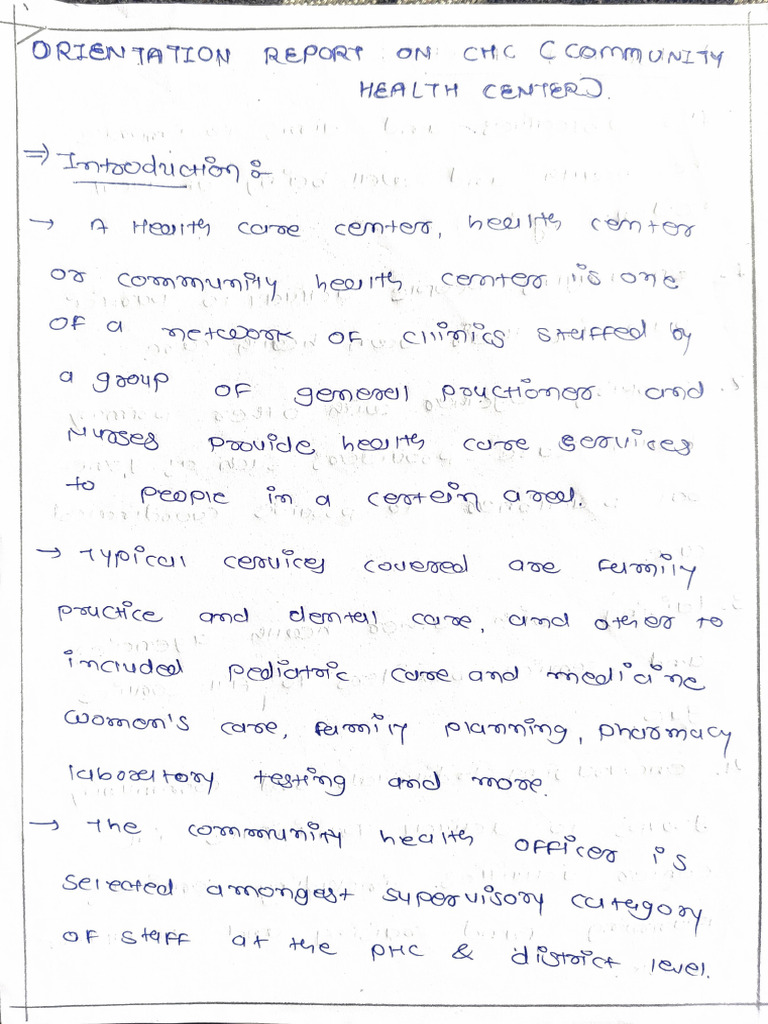 ORIENTATION REPORT ON CHC (COMMUNITY
HEALTH CENTER).
⇒ Introduction :-
→ A Health care center, health center
or community health center is one
of a network of clinics staffed by
a group of generel practioner and
Nurses provide health care services
to people in a certein area.
→ Typical cervices covered are family
practice and dental care, and other to
included pediatric care and medicine
women's care, family planning, pharmacy
laboratory testing and more.
→ The community health officer is
selected amongest supervisory category
of staff at the PHC & district level.